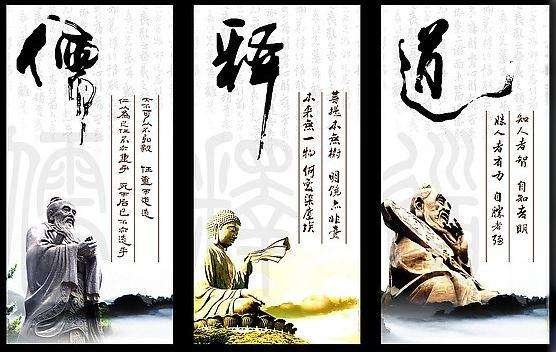 儒
士不可以不弘毅 任重而道遠
仁以為己任不亦重乎 死而后已不亦遠乎
释
菩提本無樹 明鏡亦非臺
本来無一物 何處染塵埃
道
知人者智 自知者明
勝人者有力 自勝者强